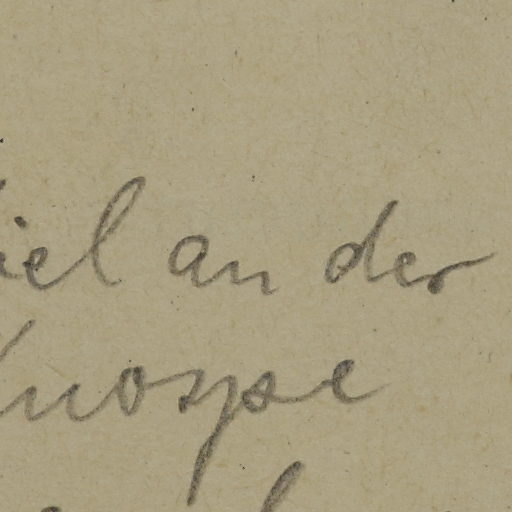 iel an der
Knospe